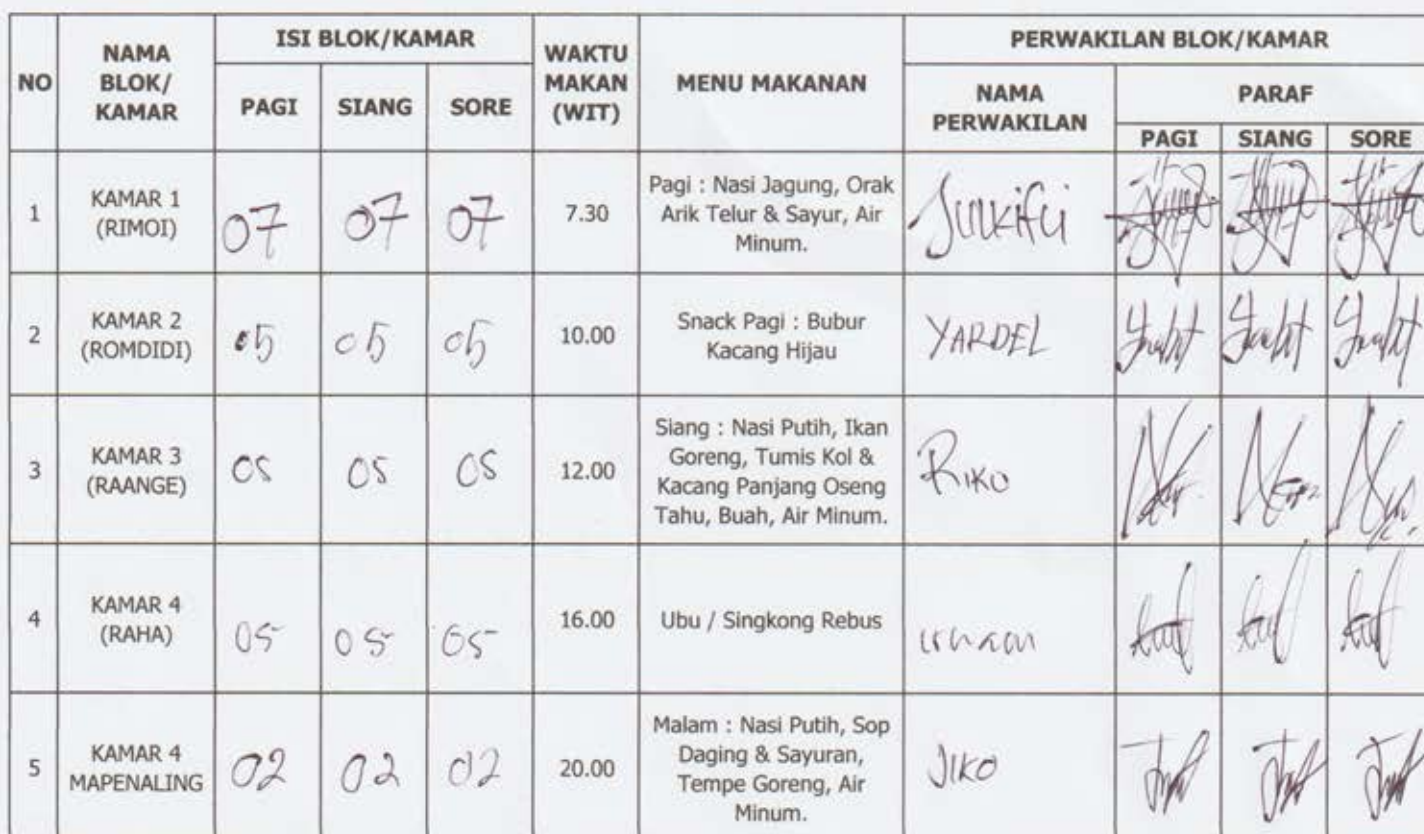 NO
NAMA BLOK/ KAMAR
ISI BLOK/KAMAR
WAKTU MAKAN (WIT)
MENU MAKANAN
PERWAKILAN BLOK/KAMAR
PAGI SIANG SORE
NAMA PERWAKILAN
PARAF
PAGI SIANG SORE
1
KAMAR 1
(RIMOI)
07 07 07
7.30
Pagi : Nasi Jagung, Orak
Arik Telur & Sayur, Air
Minum.
2
KAMAR 2
(ROMDIDI)
05 05 05
10.00
Snack Pagi : Bubur
Kacang Hijau
YARDEL
3
KAMAR 3
(RAANGE)
05 05 05
12.00
Siang : Nasi Putih, Ikan
Goreng, Tumis Kol &
Kacang Panjang Oseng
Tahu, Buah, Air Minum.
RIKO
4
KAMAR 4
(RAHA)
05 05 05
16.00
Ubu / Singkong Rebus
5
KAMAR 4
MAPENALING
02 02 02
20.00
Malam : Nasi Putih, Sop
Daging & Sayuran,
Tempe Goreng, Air
Minum.
JIKO